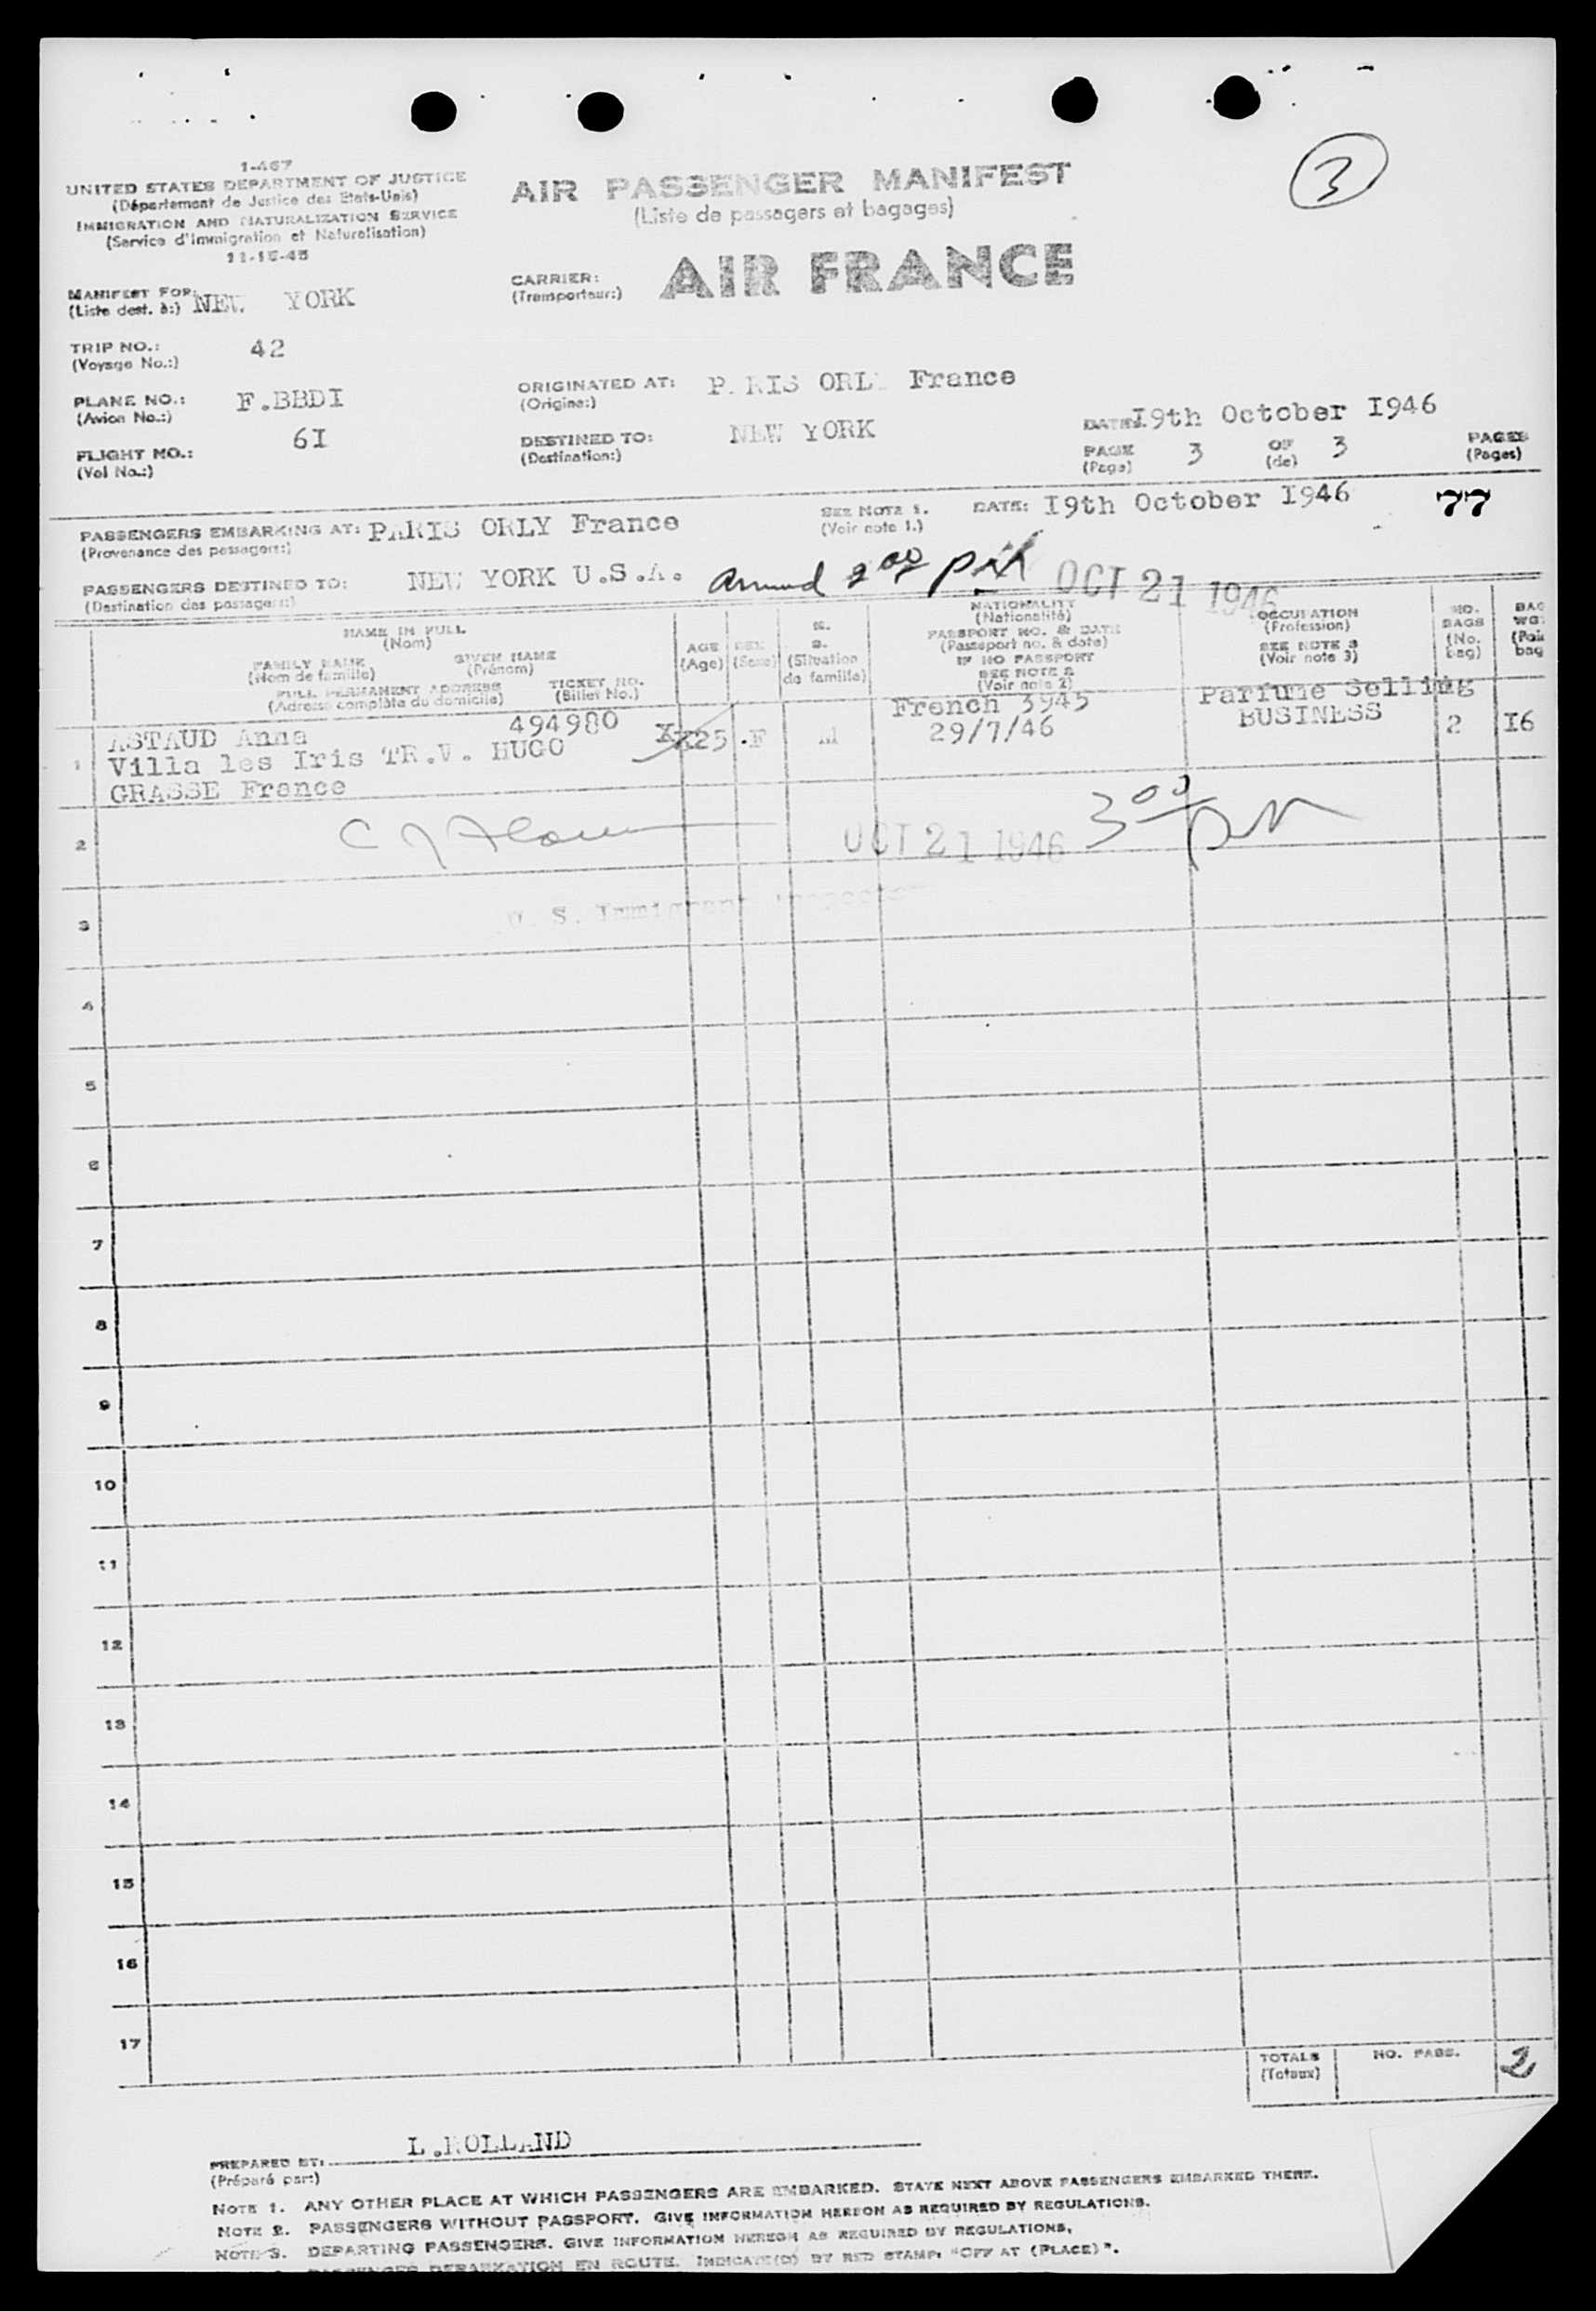 3
1-467
UNITED STATES DEPARTMENT OF JUSTICE
(Département de Justice des Etats-Unis)
IMMIGRATION AND NATURALIZATION SERVICE
(Service d'Immigration et Naturalisation)
11-15-45
AIR PASSENGER MANIFEST
(Liste de passagers et bagages)
CARRIER: AIR FRANCE
(Transporteur:)
MANIFEST FOR: NEW YORK
(Liste dest. à:)
TRIP NO.: 42
(Voyage No.:)
PLANE NO.: F.BBDI
(Avion No.:)
FLIGHT NO.: 6I
(Vol No.:)
ORIGINATED AT: P RIS ORL France
(Origine:)
DESTINED TO: NEW YORK
(Destination:)
DATE: I9th October I946
PAGE 3 OF 3 PAGES
(Page) (de) (Pages)
PASSENGERS EMBARKING AT: PARIS ORLY France
(Provenance des passagers:)
SEE NOTE 1. DATE: I9th October I946 77
(Voir note 1.)
PASSENGERS DESTINED TO: NEW YORK U.S.A.
(Destination des passagers:)
Arrived 2 00 PM OCT 21 1946
NAME IN FULL
(Nom)
FAMILY NAME GIVEN NAME
(Nom de famille) (Prénom)
FULL PERMANENT ADDRESS TICKET NO.
(Adresse complète du domicile) (Billet No.)
AGE
(Age)
SEX
(Sexe)
M.
S.
(Situation
de famille)
NATIONALITY
(Nationalité)
PASSPORT NO. & DATE
(Passeport no. & date)
IF NO PASSPORT
SEE NOTE 2
(Voir note 2)
OCCUPATION
(Profession)
SEE NOTE 3
(Voir note 3)
NO.
BAGS
(No.
bag)
BAG
WGT
(Poi
bag
1 ASTAUD Anna 494980 X X25 .F M French 3945 Parfume Selling
Villa les Iris TR.V. HUGO 29/7/46 BUSINESS 2 I6
GRASSE France
2 OCT 21 1946 3 00 PM
U. S. Immigrant Inspector
3
4
5
6
7
8
9
10
11
12
13
14
15
16
17
TOTALS NO. PASS. 2
(Totaux)
PREPARED BY: L.ROLLAND
(Préparé par:)
NOTE 1. ANY OTHER PLACE AT WHICH PASSENGERS ARE EMBARKED. STATE NEXT ABOVE PASSENGERS EMBARKED THERE.
NOTE 2. PASSENGERS WITHOUT PASSPORT. GIVE INFORMATION HEREON AS REQUIRED BY REGULATIONS.
NOTE 3. DEPARTING PASSENGERS. GIVE INFORMATION HEREON AS REQUIRED BY REGULATIONS.
PASSENGER DEBARKATION EN ROUTE. INDICATE(D) BY RED STAMP: "OFF AT (PLACE)".